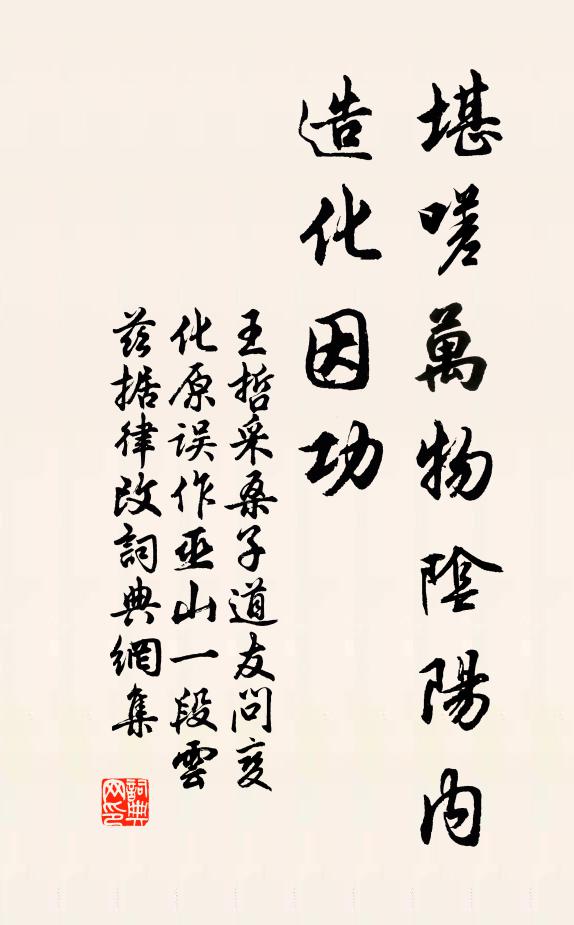 堪嗟萬物陰陽内
造化因功
王哲采桑子道友問变
化原误作巫山一段雲
兹据律改詞典網集
詞典
网印